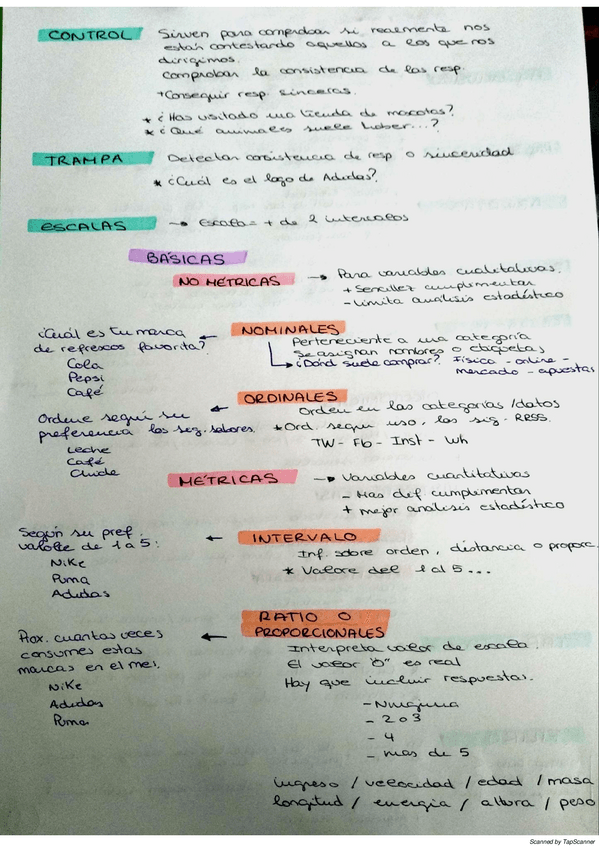 CONTROL
Sirven para comprobar si realmente nos
están contestando aquellos a los que nos
dirigimos.
Comprobar la consistencia de las resp.
+Conseguir resp. sinceras.
* ¿Has visitado una tienda de mascotas?
* ¿Qué animales suele haber...?
TRAMPA
Detectar consistencia de resp o sinceridad
* ¿Cuál es el logo de Adidas?
ESCALAS → Escala = + de 2 intervalos
BÁSICAS
NO MÉTRICAS → Para variables cualitativas.
+ Sencillez cumplimentar
- Limita análisis estadístico
NOMINALES
Perteneciente a una categoría
Se asignan nombres o etiquetas
¿Dónd suele comprar? Física - online -
mercado - apuestas
¿Cuál es tu marca
de refrescos favorita?
Cola
Pepsi
Café
ORDINALES
Orden en las categorías/datos
* Ord según uso, las sig. RRSS.
TW - Fb - Inst - Wh
Ordene según su
preferencia los sig. sabores.
Leche
Café
MÉTRICAS → Variables cuantitativas
- Mas dif cumplimentar
+ mejor análisis estadístico
INTERVALO
Inf. sobre orden, distancia o proporc.
* Valore del 1 al 5...
Según su pref.
valore de 1 a 5:
Nike
Puma
Adidas
RATIO O
PROPORCIONALES
Interpreta valor de escala.
El valor "0" es real
Hay que incluir respuestas.
- Ninguna
- 2 o 3
- 4
- mas de 5
Prox. cuantas veces
consumes estas
marcas en el mes.
Nike
Adidas
Puma
ingreso / velocidad / edad / masa
longitud / energia / altura / peso
Scanned by TapScanner